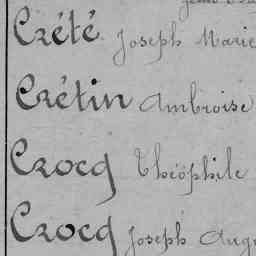 Crété Joseph Marie
Crétin Ambroise
Crocq Théophile
Crocq Joseph Aug